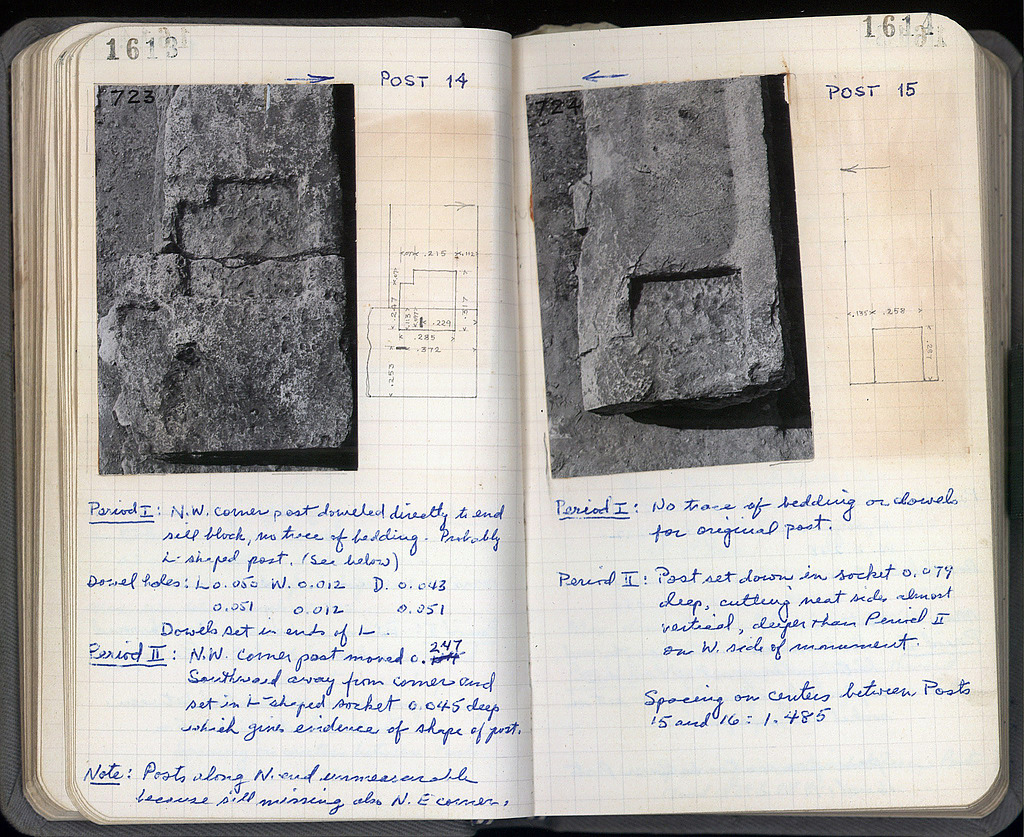 1613
POST 14
723
.215 .112
.247
.317
.229
.285
.372
.253
Period I: N.W. corner post doweled directly to end
sill block, no trace of bedding. Probably
L-shaped post. (See below)
Dowel holes: L 0.050 W. 0.012 D. 0.043
0.051 0.012 0.051
Dowels set in ends of L.
Period II: N.W. corner post moved 0.247
Southward away from corner and
set in L-shaped socket 0.045 deep
which gives evidence of shape of post.
Note: Posts along N. end unmeasurable
because sill missing also N.E corner.
1614
POST 15
724
.135 .258
Period I: No trace of bedding or dowels
for original post.
Period II: Post set down in socket 0.079
deep, cutting neat sides almost
vertical, deeper than Period II
on W. side of monument.
Spacing on centers between Posts
15 and 16: 1.485